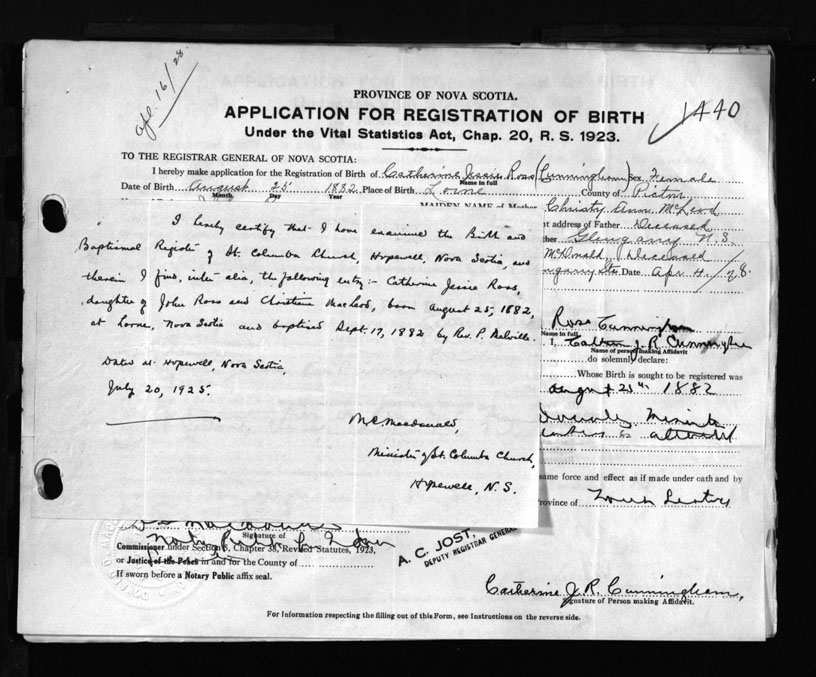 afl. 16/28
1440
PROVINCE OF NOVA SCOTIA.
APPLICATION FOR REGISTRATION OF BIRTH
Under the Vital Statistics Act, Chap. 20, R. S. 1923.
TO THE REGISTRAR GENERAL OF NOVA SCOTIA:
I hereby make application for the Registration of Birth of Catherine Jessie Ross (Cunningham) Sex Female
Name in full
Date of Birth August 25 1882 Place of Birth Lorne County of Pictou
Month Day Year
MAIDEN NAME of Mother Christy Ann McLeod
t address of Father Deceased
ther Glengarry N.S.
McDonald Deceased
Date Apr 4/28.
I hereby certify that I have examined the Birth and
Baptismal Register of St. Columba Church, Hopewell, Nova Scotia, and
therein I find, inter alia, the following entry:- Catherine Jessie Ross,
daughter of John Ross and Christina MacLeod, born August 25, 1882,
at Lorne, Nova Scotia and baptised Sept. 17, 1882 by Rev. P. Melville.
Dated at Hopewell, Nova Scotia,
July 20, 1925.
M C Macdonald,
Minister of St. Columba Church,
Hopewell, N. S.
Ross Cunningham
Name in full
I, Catherine J. R. Cunningham
Name of person making Affidavit
do solemnly declare:
Whose Birth is sought to be registered was
August 25th 1882
same force and effect as if made under oath and by
Province of
Signature of
Commissioner under Section 3, Chapter 38, Revised Statutes, 1923,
or Justice of the Peace in and for the County of
If sworn before a Notary Public affix seal.
A. C. JOST,
DEPUTY REGISTRAR GENERAL
Catherine J. R. Cunningham,
Signature of Person making Affidavit.
For Information respecting the filling out of this Form, see Instructions on the reverse side.